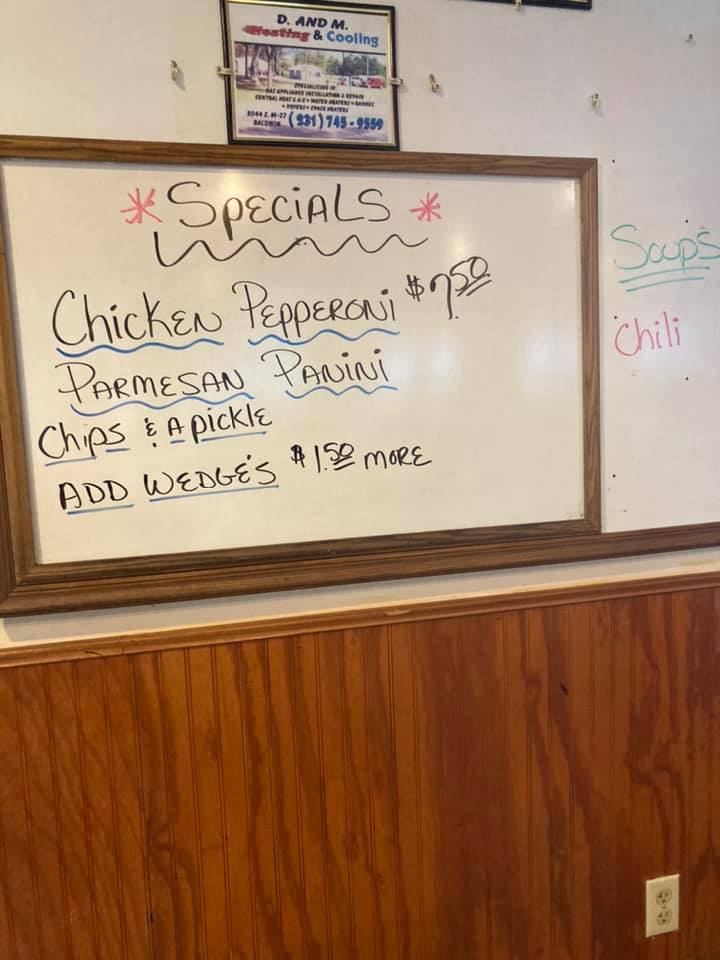 D. AND M.
Heating & Cooling
SPECIALIZING IN
GAS APPLIANCE INSTALLATION & REPAIR
CENTRAL HEAT & A/C • WATER HEATERS • RANGES
• DRYERS • SPACE HEATERS
8044 E. M-37
BALDWIN (231) 745-9559
* SPECiALS *
Chicken Pepperoni $7.50
PARMESAN PANiNi
Chips & A pickle
ADD WEDGE'S $1.50 MORE
Soups
Chili